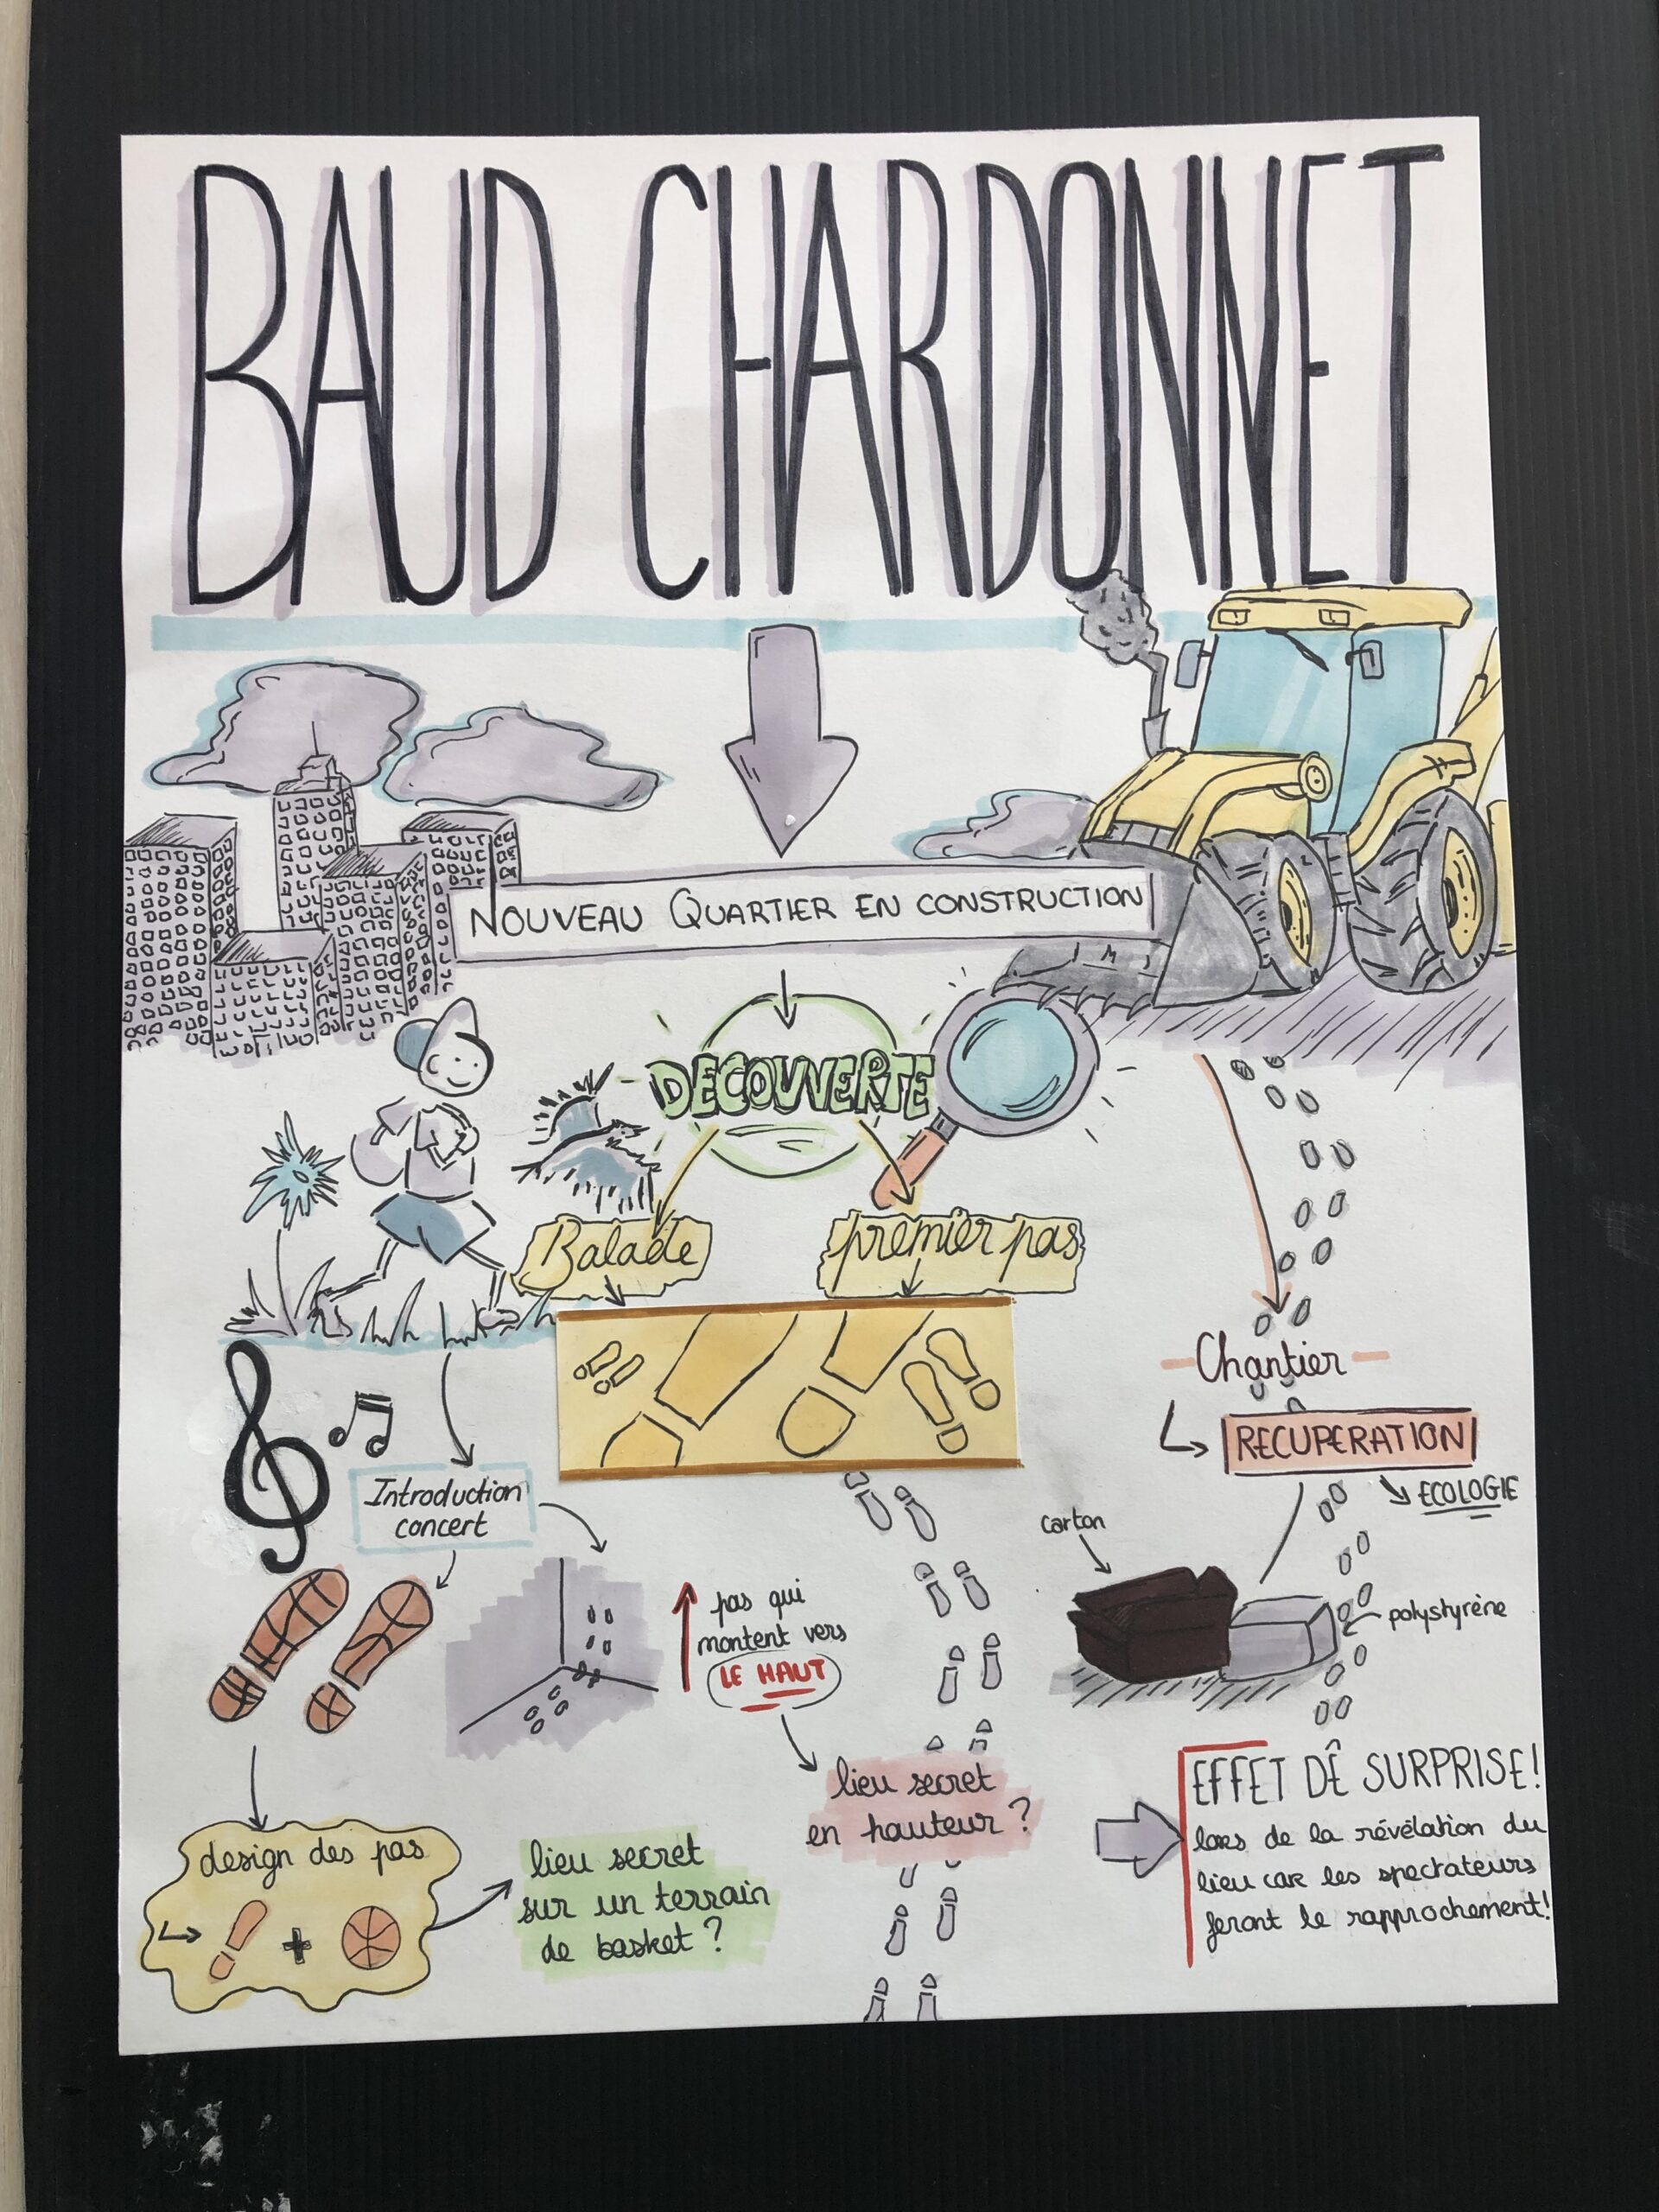 BAUD CHARDONNET
NOUVEAU QUARTIER EN CONSTRUCTION
DECOUVERTE
Balade
premier pas
Chantier
RECUPERATION
ECOLOGIE
Introduction
concert
carton
polystyrène
pas qui
montent vers
LE HAUT
lieu secret
en hauteur ?
EFFET DE SURPRISE !
lors de la révélation du
lieu car les spectateurs
feront le rapprochement !
design des pas
+
lieu secret
sur un terrain
de basket ?